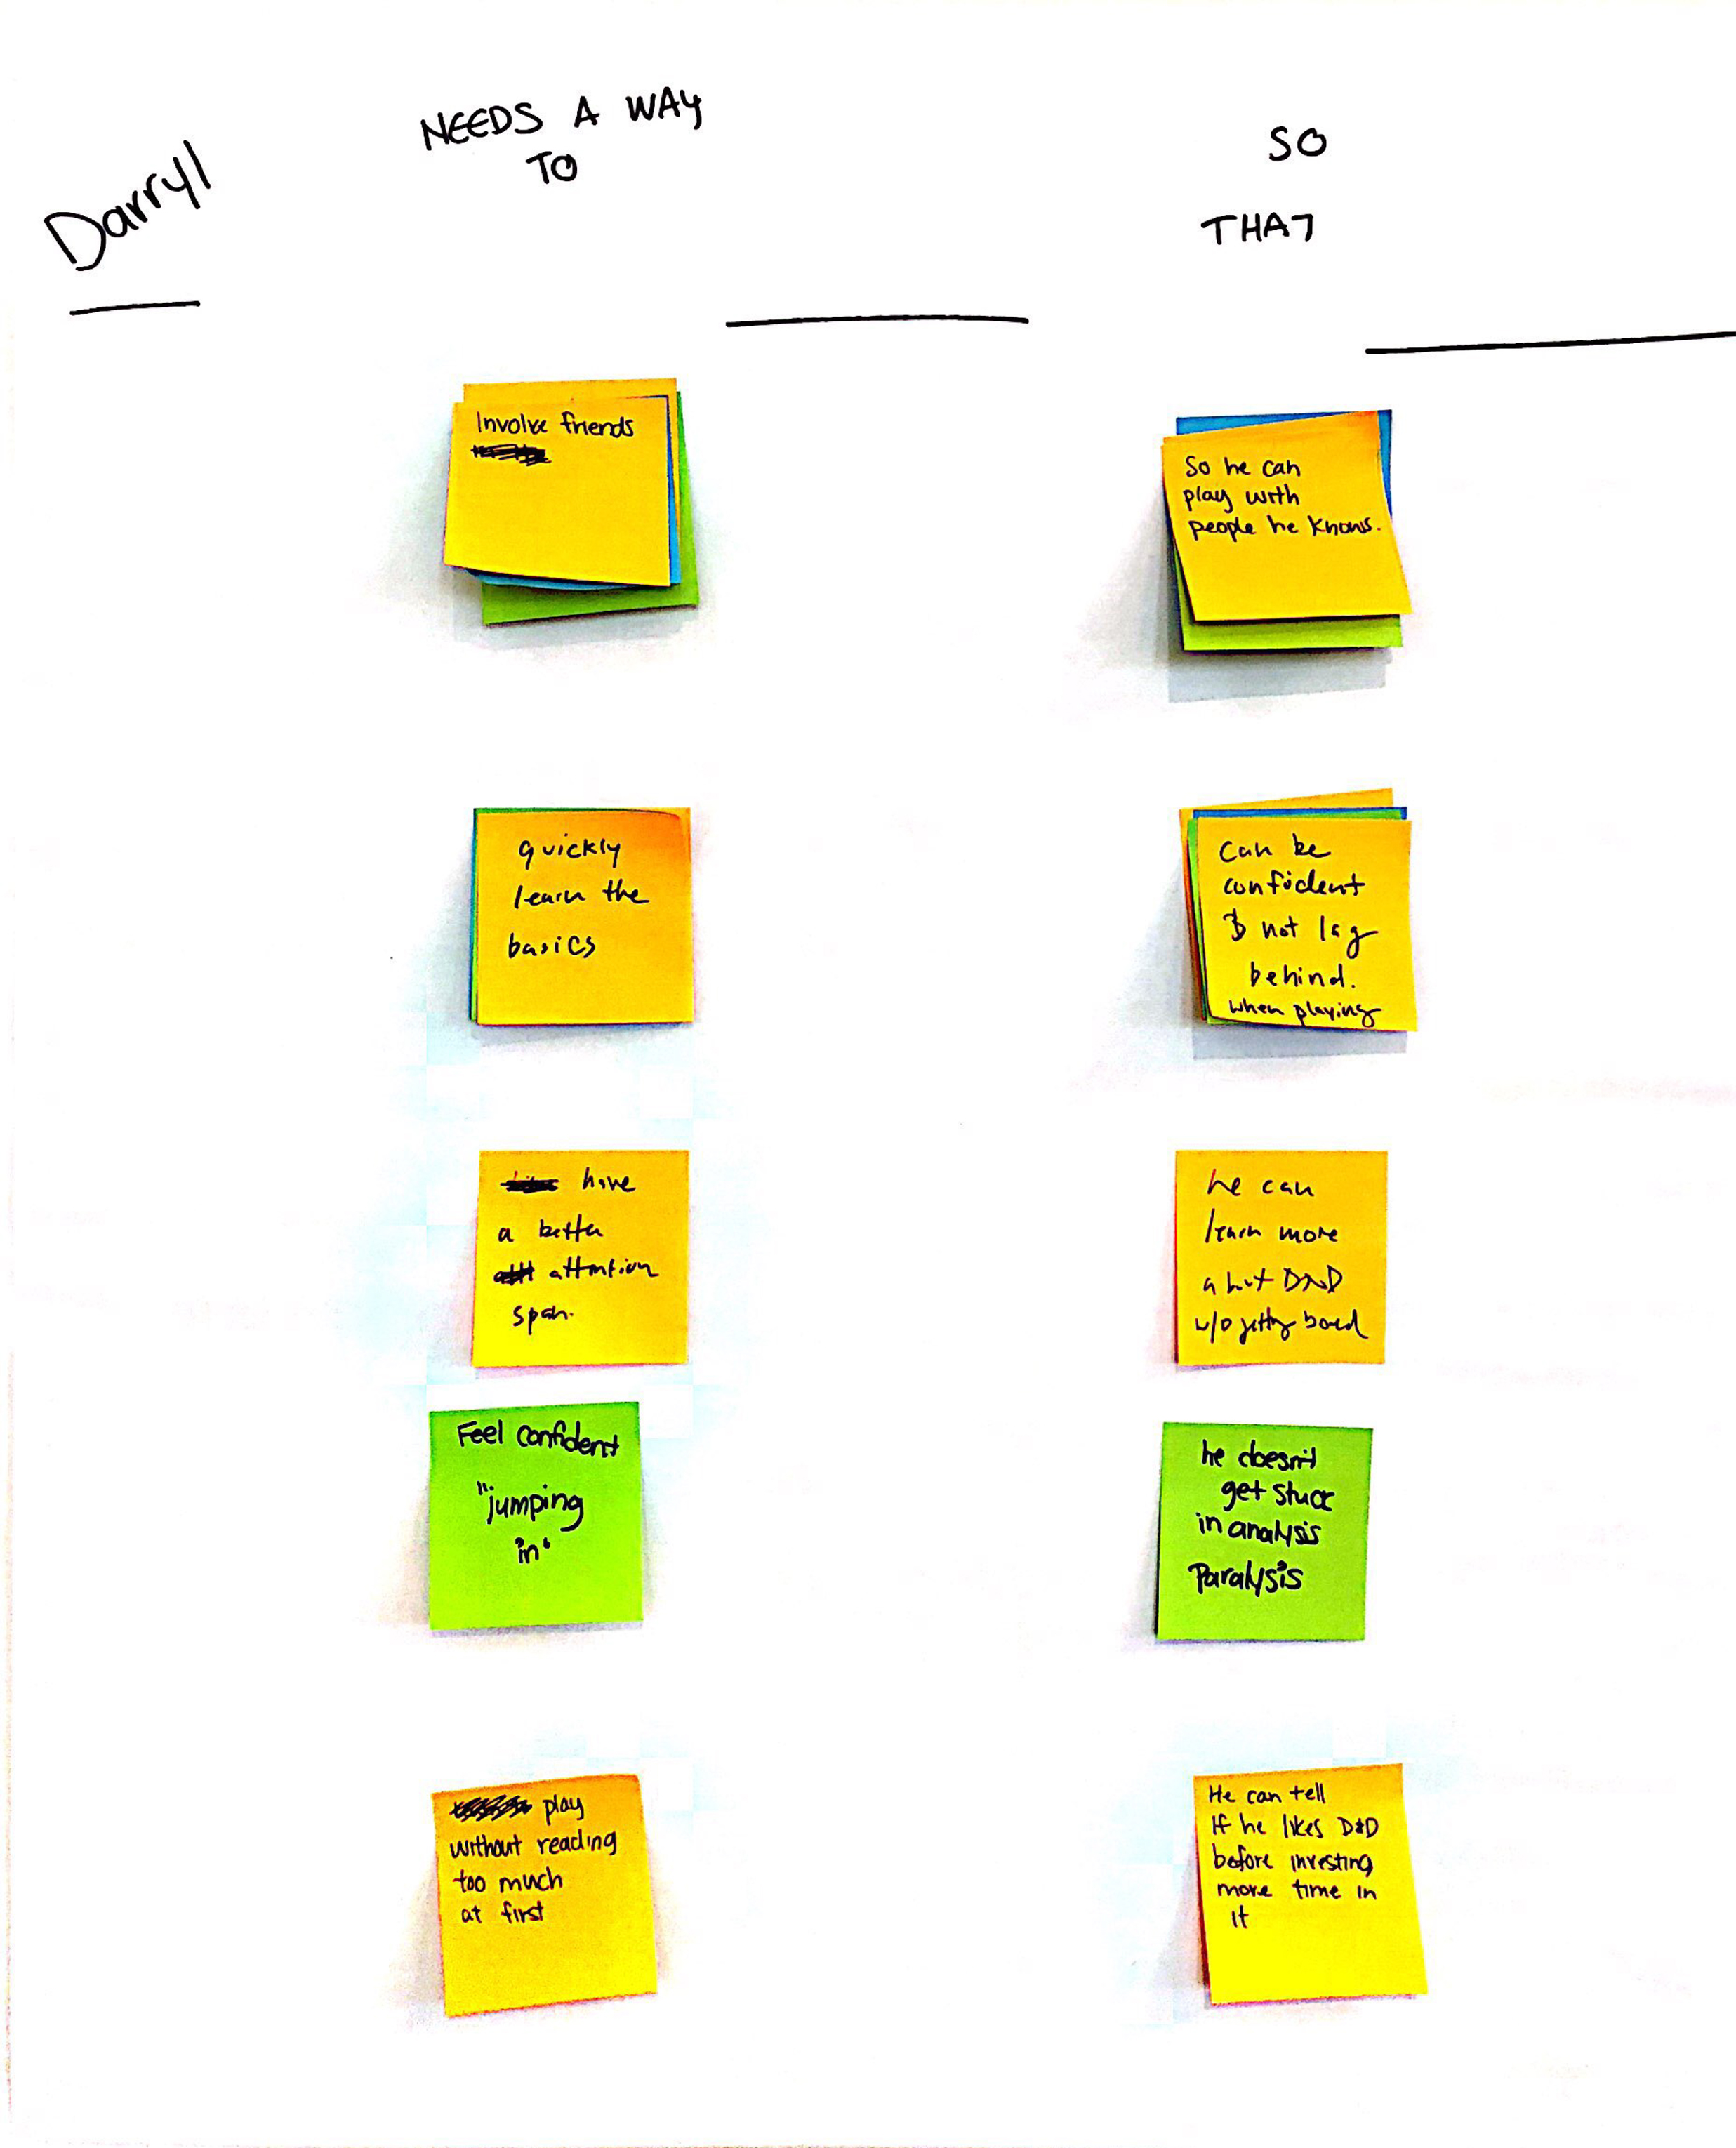 Darryl
NEEDS A WAY
TO
SO
THAT
Involve friends
So he can
play with
people he knows.
quickly
learn the
basics
can be
confident
& not lag
behind.
when playing
have
a better
attention
span.
he can
learn more
abut DND
w/o getting bored
Feel confident
"jumping
in"
he doesn't
get stuck
in analysis
Paralysis
play
without reading
too much
at first
He can tell
If he likes D&D
before investing
more time in
it